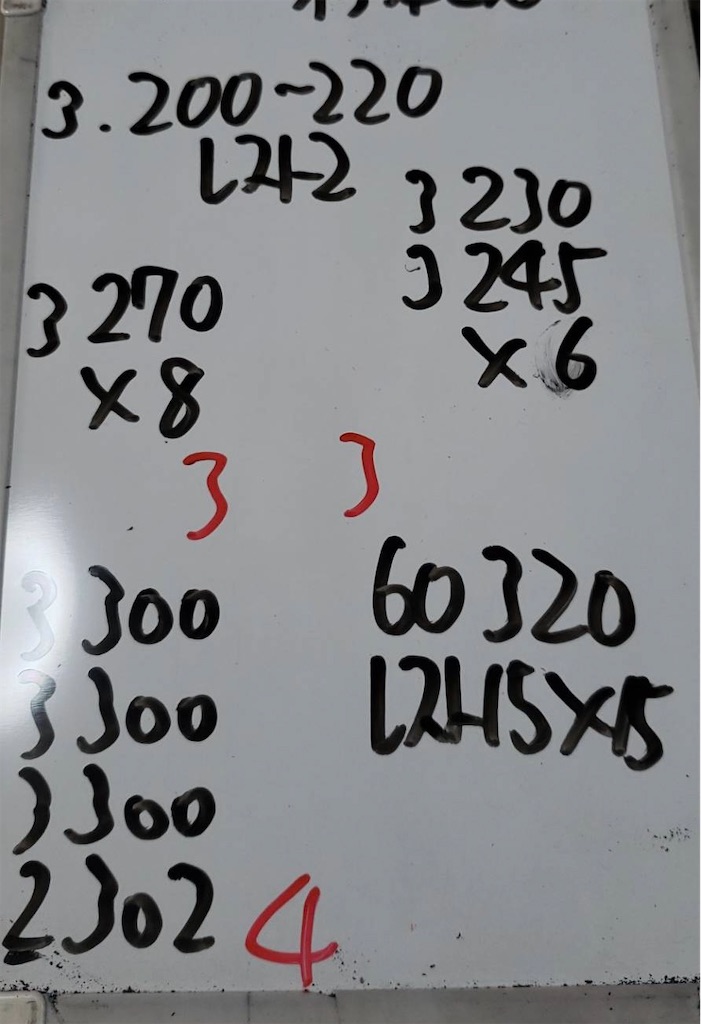 3.200~220
L24-2
3 230
3 245
x 6
3 270
x 8
3
3
3 300
3 300
3 300
2 302
4
60 320
L24-15x15